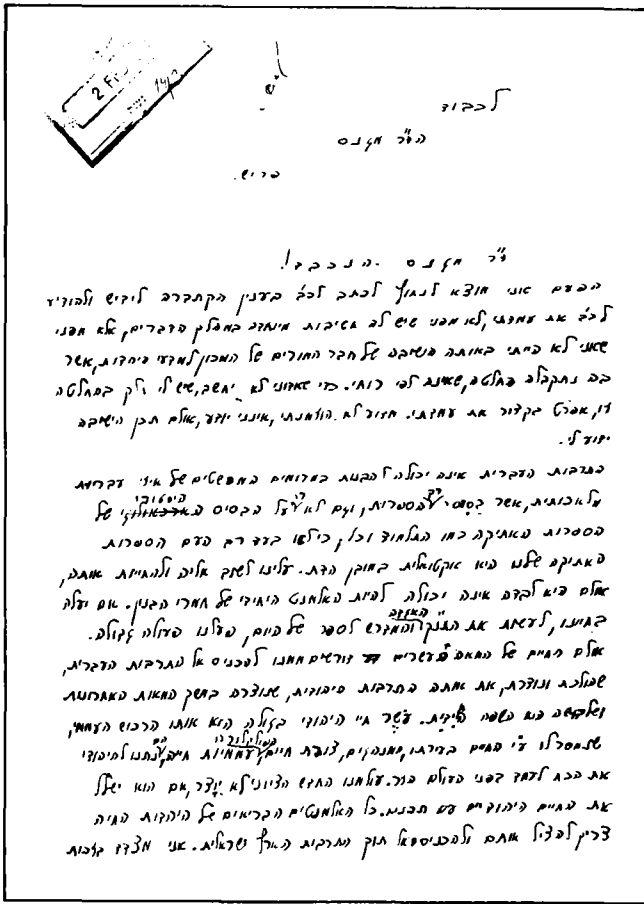 2 Fr
לכבוד
הד"ר מגנס
פריש.
ד"ר מגנס הנכבד!
הפעם אני מוצא לנחוץ לכתב לכב' בענין הקתדרה לידיש ולהודיע
לכב' את עמדתי, לא מפני שיש לה חשיבות מיוחדת במהלך הדברים, אלא מפני
שאני לא הייתי באותה הישיבה של חבר המורים של המכון למדעי היהדות, אשר
בה נתקבלה החלטה, שאינה לפי רוחי. כדי שאדוני לא יחשב, שיש לי חלק בהחלטה
זו, אפרט בקצור את עמדתי. מדוע לא הוזמנתי, אינני יודע, אולם תכן הישיבה
ידוע לי.
התרבות העברית אינה יכולה להבנות במרומים המפשטים של איזו עבריות
מלאכותית, אשר בספר והספרות, וגם לא רק על הבסיס היסטורי של
הספרות העתיקה כמו התלמוד וכו', כי לא בעד רב העם הספרות
העתיקה שלנו היא אקטואלית במובן הדת. עלינו לשוב אליה ולהחיות אותה,
אולם היא לבדה אינה יכולה להיות האלמנט היחידי של חמרי הבנין. אם יעלה
בידינו, לעשות את התנ"ך האגדה והמדרש לספר של היום, פעלנו פעולה גדולה.
אולם החיים של המאה העשרים דורשים ממנו להכניס אל התרבות העברית,
שהולכת ונוצרת, את אותה התרבות היהודית, שנוצרה במשך המאות האחרונות
ושלבושה הוא השפה היידית. עשר חיי היהודי בגולה הוא אותו הרכוש העממי,
שנמסר לו ע"י החיים בדירתו, ומנהגים, צורת חיים, הפולקלור ועממיות חייה, הם נתנו ליהודי
את הכח לעמד בפני העולם הזר. עולמנו החדש הציוני לא יוצר, אם הוא ישלל
את החיים היהודיים עם תכנם. כל האלמנטים הבריאים של היהדות החיה
צריך להציל אותם ולהכניסם אל תוך התרבות הארץ ישראלית. אני מצדד בזכות